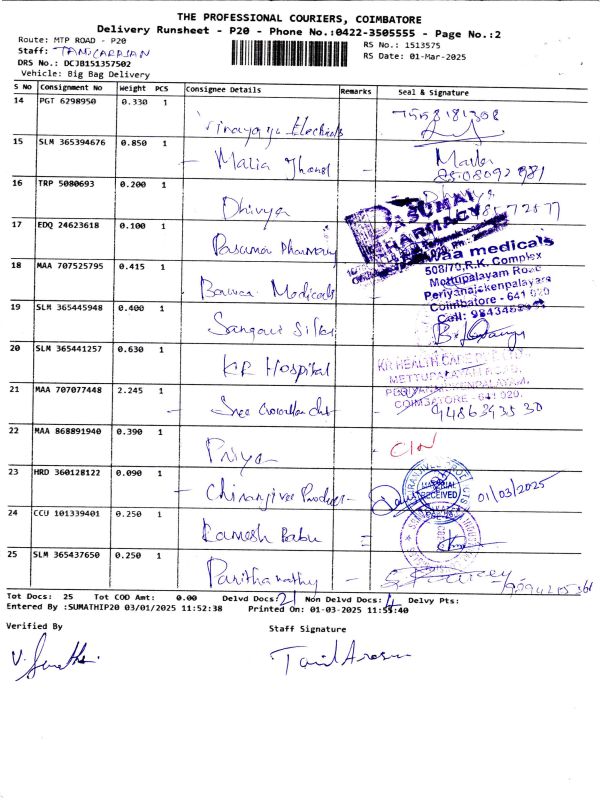 THE PROFESSIONAL COURIERS, COIMBATORE
Delivery Runsheet - P20 - Phone No.:0422-3505555 - Page No.:2
Route: MTP ROAD - P20
RS No.: 1513575
Staff: TAMILARASAN
RS Date: 01-Mar-2025
DRS No.: DCJB151357502
Vehicle: Big Bag Delivery
S No Consignment No Weight PCS Consignee Details Remarks Seal & Signature
14 PGT 6298950 0.330 1 Vinayaga Electricals 7558181308
15 SLM 365394676 0.850 1 - Malia -
16 TRP 5080693 0.200 1 Dhivya Dhivya
17 EDQ 24623618 0.100 1 Pasumai Pharmacy PASUMAI PHARMACY
18 MAA 707525795 0.415 1 Bawaa Medicals
Bawaa medicals
508/70, R.K. Complex
Mettupalayam Road
Periyanaickenpalayam
Coimbatore - 641 020
19 SLM 365445948 0.400 1 Sangavi Silks
20 SLM 365441257 0.630 1 KR Hospital
KR HEALTH CARE
METTUPALAYAM ROAD,
PERIYANAICKENPALAYAM,
COIMBATORE - 641 020.
21 MAA 707077448 2.245 1 - Sree - 9486393530
22 MAA 868891940 0.390 1 Priya
23 HRD 360128122 0.090 1 - Chiranjivee Products - MATERIAL RECEIVED 01/03/2025
24 CCU 101339401 0.250 1 Ramesh Babu =
25 SLM 365437650 0.250 1 -
Tot Docs: 25 Tot COD Amt: 0.00 Delvd Docs: 21 Non Delvd Docs: 4 Delvy Pts:
Entered By :SUMATHIP20 03/01/2025 11:52:38 Printed On: 01-03-2025 11:55:40
Verified By Staff Signature
V. Sumathi. Tamil Arasan